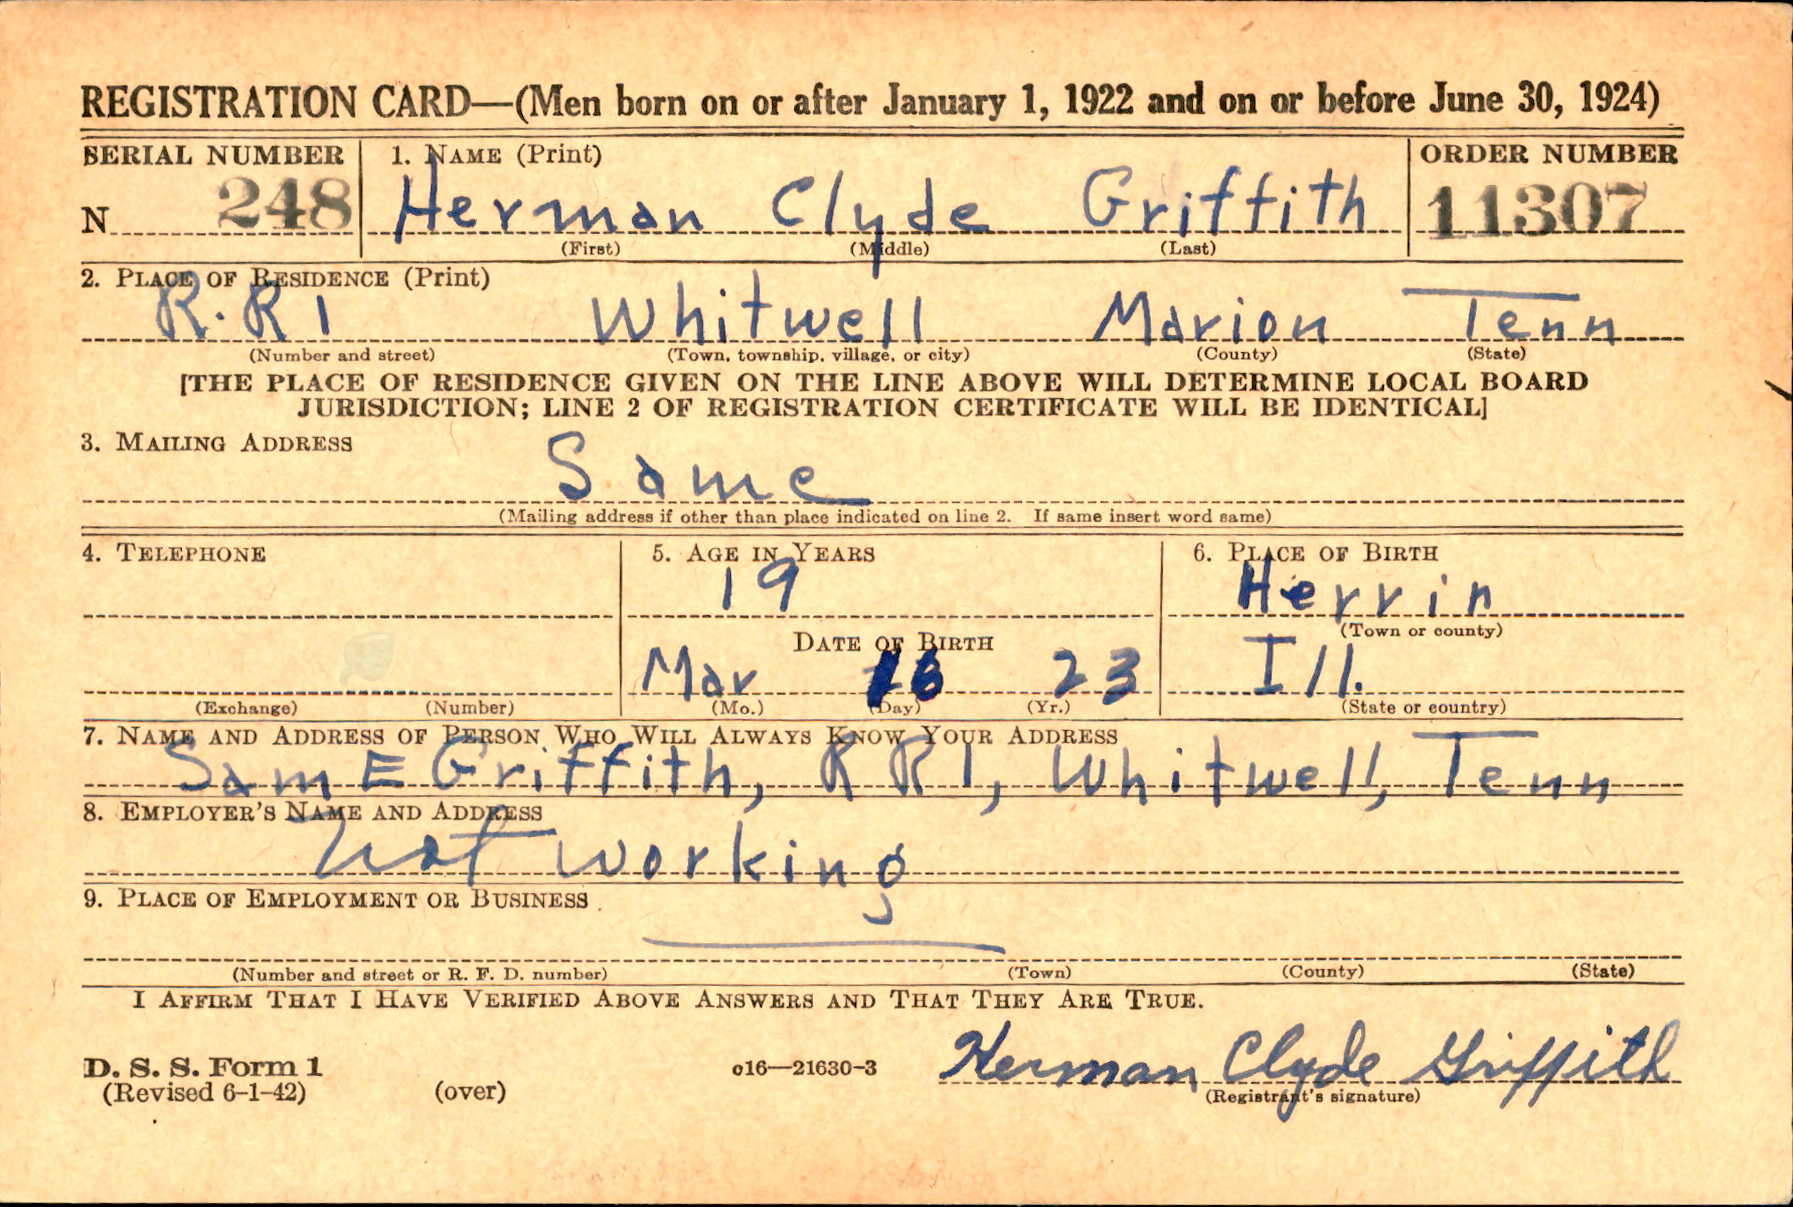 REGISTRATION CARD—(Men born on or after January 1, 1922 and on or before June 30, 1924)
SERIAL NUMBER 1. NAME (Print) ORDER NUMBER
N 248 Herman Clyde Griffith 11307
(First) (Middle) (Last)
2. PLACE OF RESIDENCE (Print)
R.R 1 Whitwell Marion Tenn
(Number and street) (Town, township, village, or city) (County) (State)
[THE PLACE OF RESIDENCE GIVEN ON THE LINE ABOVE WILL DETERMINE LOCAL BOARD
JURISDICTION; LINE 2 OF REGISTRATION CERTIFICATE WILL BE IDENTICAL]
3. MAILING ADDRESS
Same
(Mailing address if other than place indicated on line 2. If same insert word same)
4. TELEPHONE 5. AGE IN YEARS 6. PLACE OF BIRTH
19 Herrin
(Town or county)
DATE OF BIRTH
Mar 16 23 Ill.
(Exchange) (Number) (Mo.) (Day) (Yr.) (State or country)
7. NAME AND ADDRESS OF PERSON WHO WILL ALWAYS KNOW YOUR ADDRESS
Sam E Griffith, R R 1, Whitwell, Tenn
8. EMPLOYER'S NAME AND ADDRESS
Not working
9. PLACE OF EMPLOYMENT OR BUSINESS
(Number and street or R. F. D. number) (Town) (County) (State)
I AFFIRM THAT I HAVE VERIFIED ABOVE ANSWERS AND THAT THEY ARE TRUE.
D. S. S. Form 1 c16—21630-3 Herman Clyde Griffith
(Revised 6-1-42) (over) (Registrant's signature)